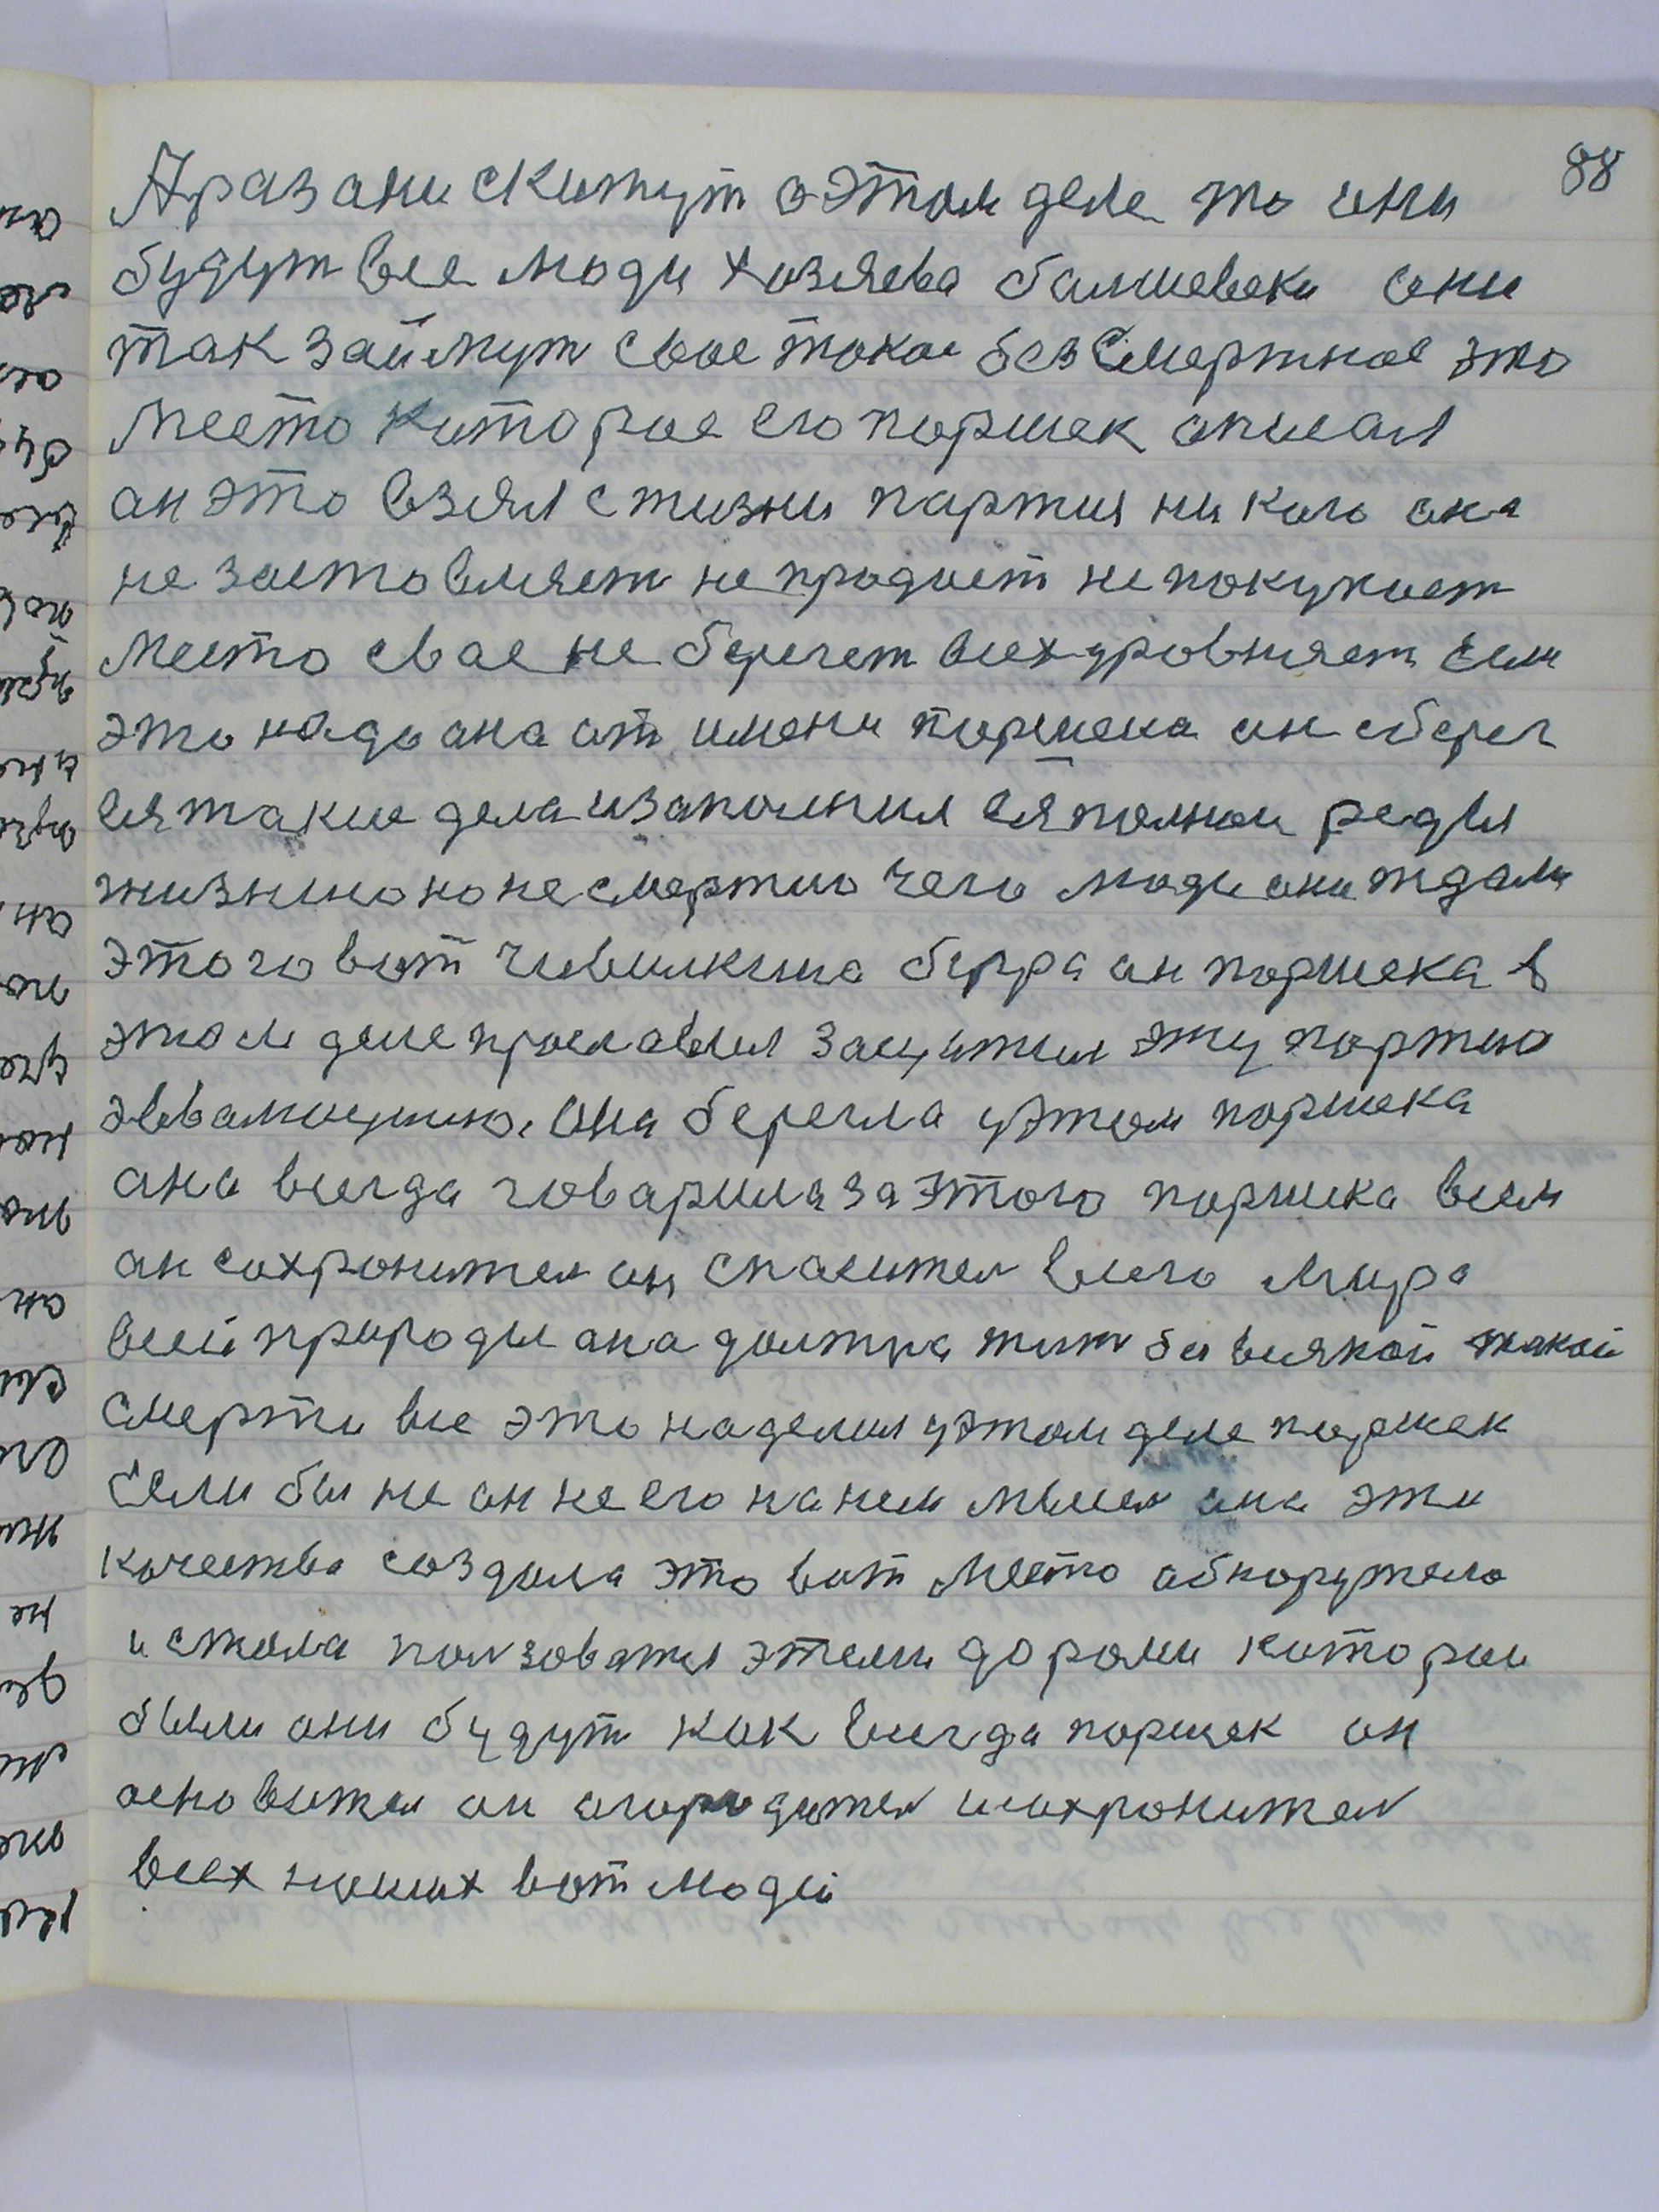 88
А раз они скижут о этом деле то они
будут все люди хозяева балшевеки они
так займут свое такое безсмертное это
место киторое его поршек описал
ан это взял с жизни партия ни кого она
не заставляет не продает не покукает
место свае не беречет всех уровняет если
это надо она от имени поршека он сберег
вся такие дела изаполнил вся полном редья
жизнию но не смертию чего люди они ждали
этого вот чивилкина бугра он поршека в
этом деле прославил защитил эту партию
эвалюцию. Она беречла уэтом поршека
ана всегда говарила за этого поршека всем
ан сохронител он спасител всего мира
всей природы она должна жит без всякой такой
смерти все это наделил уэтом деле поршек
Если бы не он не его на нем мысел она эти
качества создала это вот место обноружело
и стала ползоватся этеми дороми киторыи
были они будут как всегда поршек он
основател он огородител исохронител
всех наших вот людей